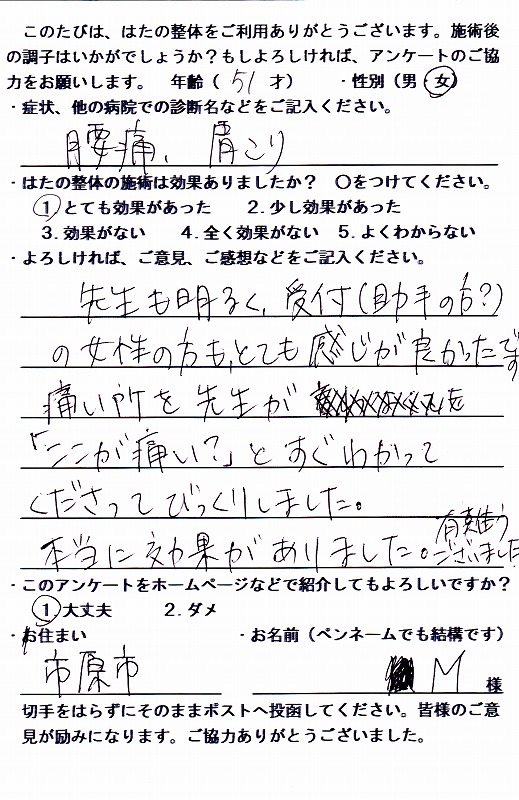 このたびは、はたの整体をご利用ありがとうございます。施術後
の調子はいかがでしょうか?もしよろしければ、アンケートのご協
力をお願いします。 年齢( 51 才) ・性別(男 女)
・症状、他の病院での診断名などをご記入ください。
腰痛、 肩こり
・はたの整体の施術は効果ありましたか? 〇をつけてください。
1 とても効果があった 2.少し効果があった
3.効果がない 4.全く効果がない 5.よくわからない
・よろしければ、ご意見、ご感想などをご記入ください。
先生も明るく、受付(助手の方?)
の女性の方も、とても感じが良かったです
痛い所を先生が
「ここが痛い?」とすぐわかって
くださってびっくりしました。
本当に効果がありました。有難うございました
・このアンケートをホームページなどで紹介してもよろしいですか?
1 大丈夫 2.ダメ
・お住まい ・お名前(ペンネームでも結構です)
市原市 M 様
切手をはらずにそのままポストへ投函してください。皆様のご意
見が励みになります。ご協力ありがとうございました。